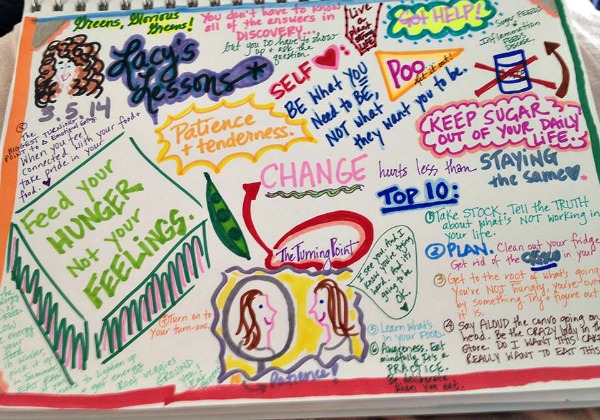 Greens, Glorious
Greens!
You don't have to know
all of the answers in
DISCOVERY...
but you DO have to show
up + ask the
question.
Live
Got HELP!
Sugar FEEDS
Inflammation
FEEDS
DISEASE.
Lacy's
Lessons
3.5.14
SELF
BE What YOU
Need to BE,
NOT what
they want you to be.
POO
Patience
+ tenderness.
KEEP SUGAR
OUT OF YOUR DAILY
LiFE.
The
BIGGEST TURNING
POINT
When you feel
connected with your food +
take pride in your
food.
CHANGE hurts less than STAYING
the same.
Feed your
HUNGER
Not your
FEELINGS.
The Turning Point
I see you that I
know you're trying
hard. And it's
going to
be
OK.
TOP 10:
① Take STOCK. Tell the TRUTH
about what's NOT working in
your life.
② PLAN. Clean out your fridge
Get rid of the in your
③ Get to the root of what's going
You're NOT hungry, you're
by something. Try + figure out
it is.
④ Say ALOUD the convo going on
head. Be the CRAZY lady in the
Store. DO I WANT THIS CAKE
REALLY WANT TO EAT THIS
⑤ Learn what's
in your FOOD.
⑥ Awareness. Eat
mindfully. It's a
PRACTICE.
Be deliberate
when you eat.
Turn on to
your turn-ons.
Patience!